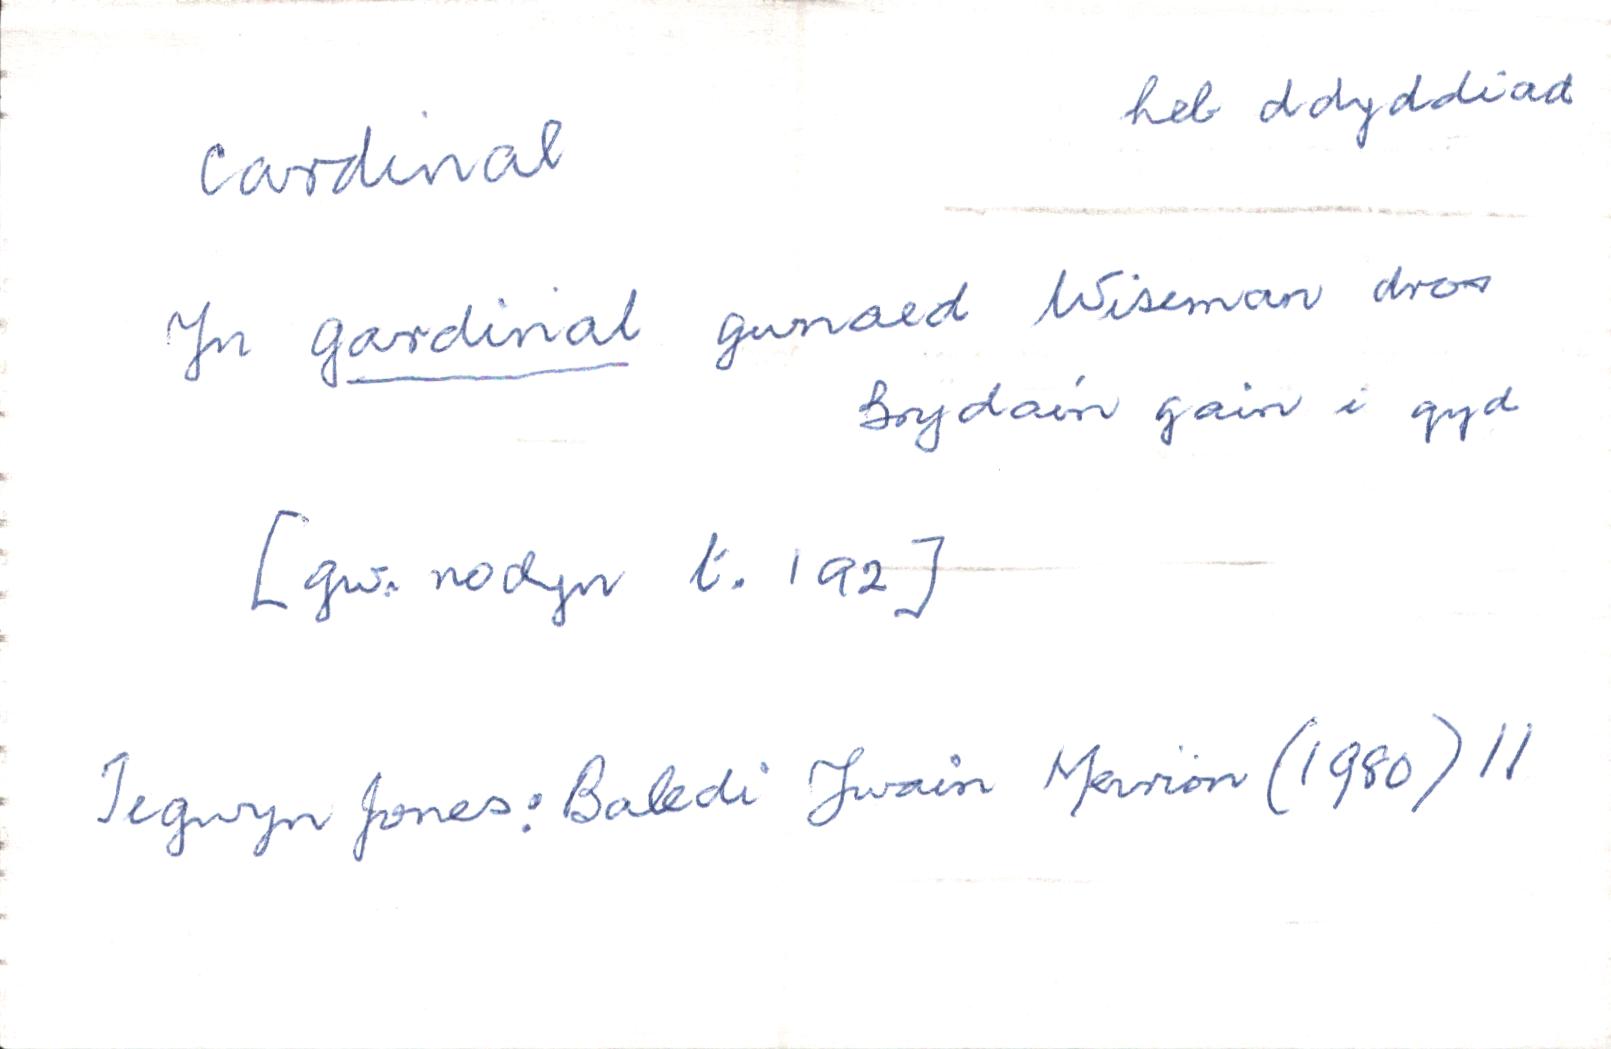 heb ddyddiad
cardinal
Yn gardinal gwnaed Wiseman dros
Brydain gain i gyd
[gw. nodyn t. 192]
Tegwyn Jones: Baledi Ywain Meirion (1980) 11